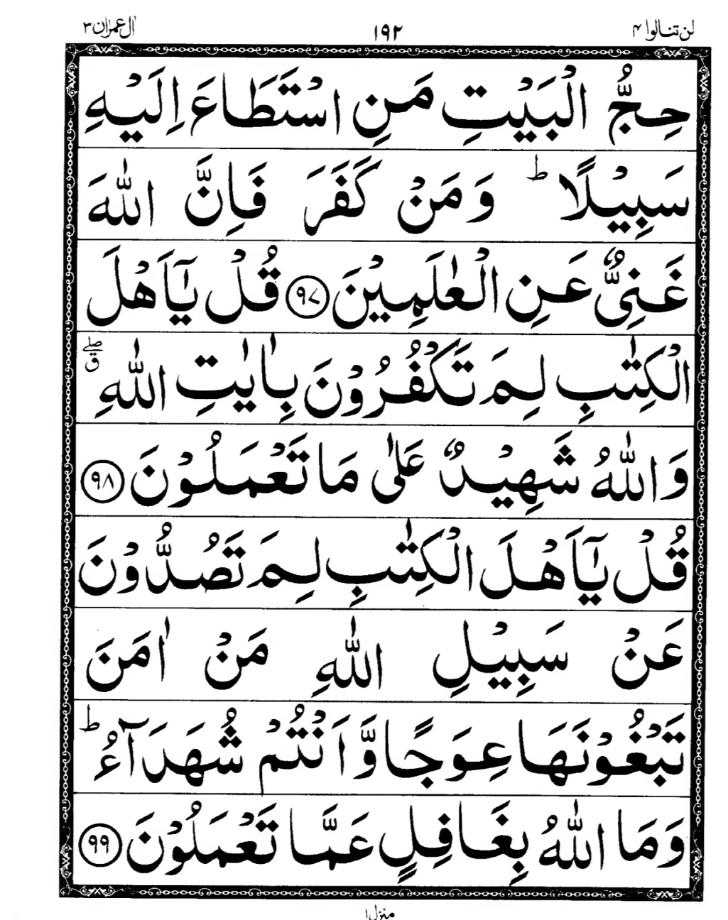 لن تنالوا ۴ ۱۹۲ اٰل عمرٰن ۳
حِجُّ الْبَيْتِ مَنِ اسْتَطَاعَ اِلَيْهِ
سَبِيْلًا ؕ وَمَنْ كَفَرَ فَاِنَّ اللّٰهَ
غَنِىٌّ عَنِ الْعٰلَمِيْنَ ۹۷ قُلْ يٰۤاَهْلَ
الْكِتٰبِ لِمَ تَكْفُرُوْنَ بِاٰيٰتِ اللّٰهِ ۖق
وَاللّٰهُ شَهِيْدٌ عَلٰى مَا تَعْمَلُوْنَ ۹۸
قُلْ يٰۤاَهْلَ الْكِتٰبِ لِمَ تَصُدُّوْنَ
عَنْ سَبِيْلِ اللّٰهِ مَنْ اٰمَنَ
تَبْغُوْنَهَا عِوَجًا وَّاَنْتُمْ شُهَدَآءُ ؕ
وَمَا اللّٰهُ بِغَافِلٍ عَمَّا تَعْمَلُوْنَ ۹۹
منزل ۱